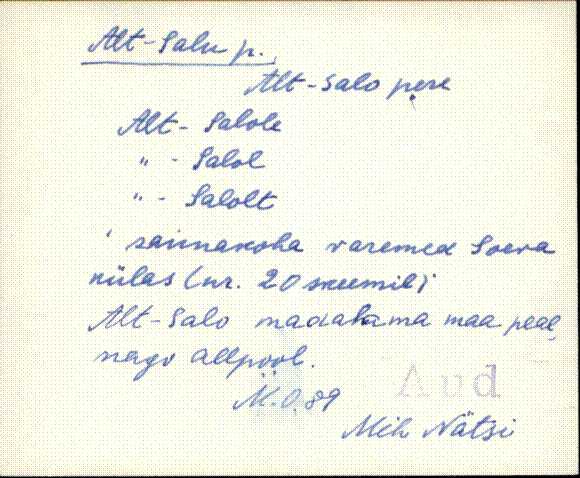 Alt-Salu p.
Alt-Salo pere
Alt-Salole
" - Salol
" - Salolt
saunakoha varemed Soeva
külas (nr. 20 skeemil)
Alt-Salo madalama maa peal,
nagu allpool.
89
Aud
Mih Nätsi